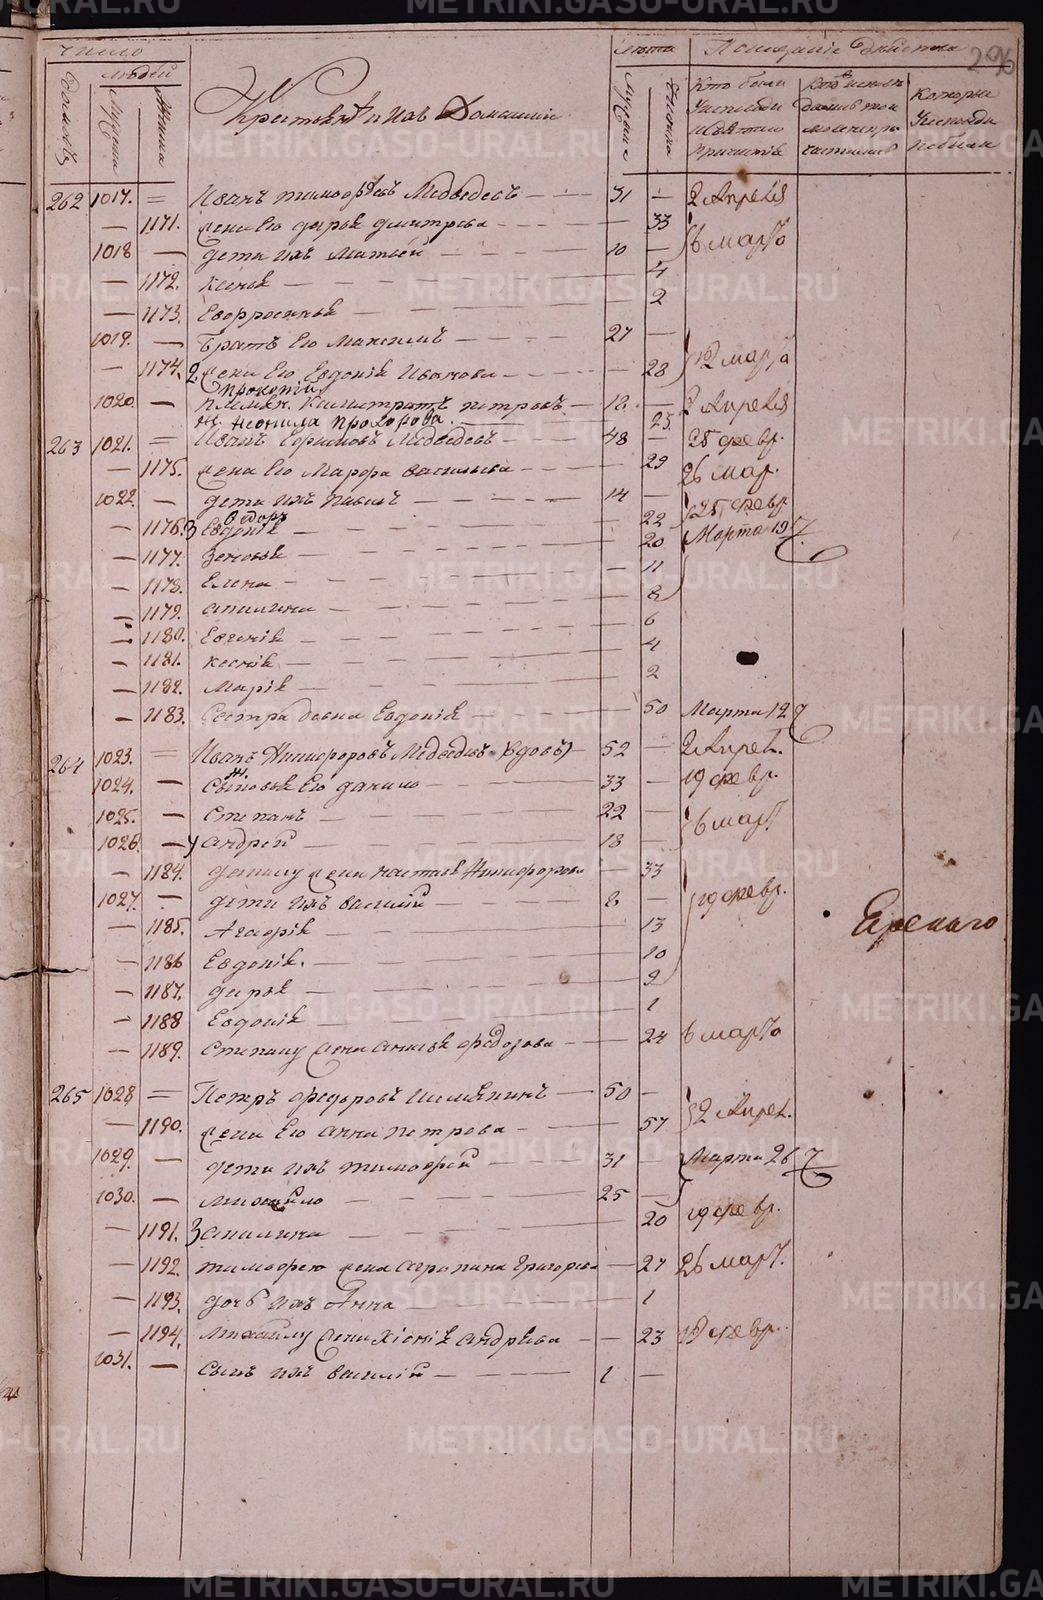 296
число
людей
лета
Показаніе Действа
домовъ
Мужеска
Женска
Крестьяне и ихъ Домашніе
Мужеска
Женска
Кто были
Исповеди
и Святыхъ
Причастия
Которые
Исповеди
не были
262 1017. = Иванъ Тимофеевъ Медведевъ — 31 — 2 Апреля
— 1171. жена Его Дарья Дмитрева — 33
1018 — дети ихъ Матвей — 10 — 6 Марта
— 1172. Ксенья — 4
— 1173. Евфросинья — 2
1019. — братъ Его Максимъ — 27 —
— 1174. 2 жена Его Евдокія Иванова — 28 12 марта
Прокопій
1020. — племян. Калистратъ Петровъ — 18 — 2 Апреля
ж. Неонила Прохорова. — 23.
263 1021. = Иванъ Ефимовъ Медведевъ — 48 — 25 февр.
— 1175. жена Его Марфа Васильева — 29 26 мар.
1022. — дети ихъ Павелъ — 14 — 25 февр
Федоръ
— 1176. 3 Евдокія — 22
— 1177. Зеновья — 20 Марта 19
— 1178. Елена — 11
— 1179. Апилина — 8
— 1180. Евгенія — 6
— 1181. Ксенія — 4
— 1182. Марія — 2
— 1183. Сестра девка Евдокія — 50 Марта 12
264 1023. = Иванъ Никифоровъ Медведевъ (вдовъ) — 52 — 2 Апрел.
1024. — Сыновья Его Данило — 33 — 19 февр.
1025. — Степанъ — 22 —
1026. — Андрей — 18 6 март
— 1184. Данилу жена Настасья Никифорова — 33
1027. — дети ихъ Василій — 8 — 19 февр.
— 1185. Агафія — 13
Еренаго
— 1186 Евдокія. — 10
— 1187. Дарья — 9
— 1188 Евдокія — 1
— 1189. Степану жена Анисья Федорова — 24 6 марта
265 1028 = Петръ Федоровъ — 50 —
— 1190. жена Его Анна Петрова — 57 2 Апрел.
1029. — дети ихъ Тимофей — 31 — Марта 26
1030. — Михайло — 25 —
— 1191. 3 Апилина — 20 19 февр.
— 1192. Тимофею жена Агропина Григорева — 27 26 март.
— 1193. дочь ихъ Анна — 1
— 1194. Михайлу жена Хіонія Андреева — 23 19 февр.
1031. — Сынъ ихъ Василій — 1 —
METRIKI.GASO-URAL.RU